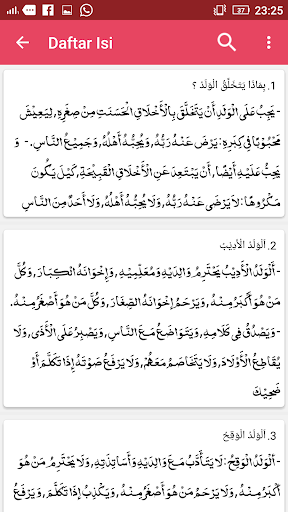 37
23:25
Daftar Isi
1. بِمَاذَا يَتَخَلَّقُ الْوَلَدُ ؟
- يَجِبُ عَلَى الْوَلَدِ أَنْ يَتَخَلَّقَ بِالْأَخْلَاقِ الْحَسَنَتِ مِنْ صِغَرِهِ, لِيَعِيْشَ
مَحْبُوْبًا فِي كِبَرِهِ: يَرْضَى عَنْهُ رَبُّهُ, وَيُحِبُّهُ أَهْلُهُ, وَجَمِيْعُ النَّاسِ. - وَ
يَجُبُ عَلَيْهِ أَيْضًا, أَنْ يَبْتَعِدَ عَنِ الْأَخْلَاقِ الْقَبِيْحَةِ, كَيْلَ يَكُوْنَ
مَكْرُوْهًا: لَا يَرْضَى عَنْهُ رَبُّهُ, وَلَا يُحِبُّهُ أَهْلُهُ, وَلَا أَحَدٌ مِنَ النَّاسِ
2. اَلْوَلَدُ الْأَدِيْبُ
- أَلْوَلَدُ الْأَدِيْبُ يَحْتَرِمُ وَالِدَيْهِ وَمُعَلِّمِيْهِ, وَإِخْوَانَهُ الْكِبَارَ, وَكُلَّ
مَنْ هُوَ أَكْبَرُ مِنْهُ, وَيَرْحَمُ إِخْوَانَهُ الصِّغَارَ, وَكُلَّ مَنْ هُوَ أَصْغَرُ مِنْهُ.
- وَيَصْدُقُ فِي كَلَامِهِ, وَيَتَوَاضَعُ مَعَ النَّاسِ, وَيَصْبِرُ عَلَى الْأَذَى, وَلَا
يُقَاطِعُ الْأَوْلَادَ, وَلَا يَتَخَاصَمُ مَعَهُمْ, وَلَا يَرْفَعُ صَوْتَهُ إِذَا تَكَلَّمَ أَوْ
ضَحِكَ
3. اَلْوَلَدُ الْوَقِحُ
- اَلْوَلَدُ الْوَقِحُ: لَا يَتَأَدَّبُ مَعَ وَالِدَيْهِ وَأَسَاتِذَتِهِ, وَلَا يَحْتَرِمُ مَنْ هُوَ
أَكْبَرُ مِنْهُ, وَلَا يَرْحَمُ مَنْ هُوَ أَصْغَرُ مِنْهُ, وَيَكْذِبُ إِذَا تَكَلَّمَ, وَيَرْفَعُ